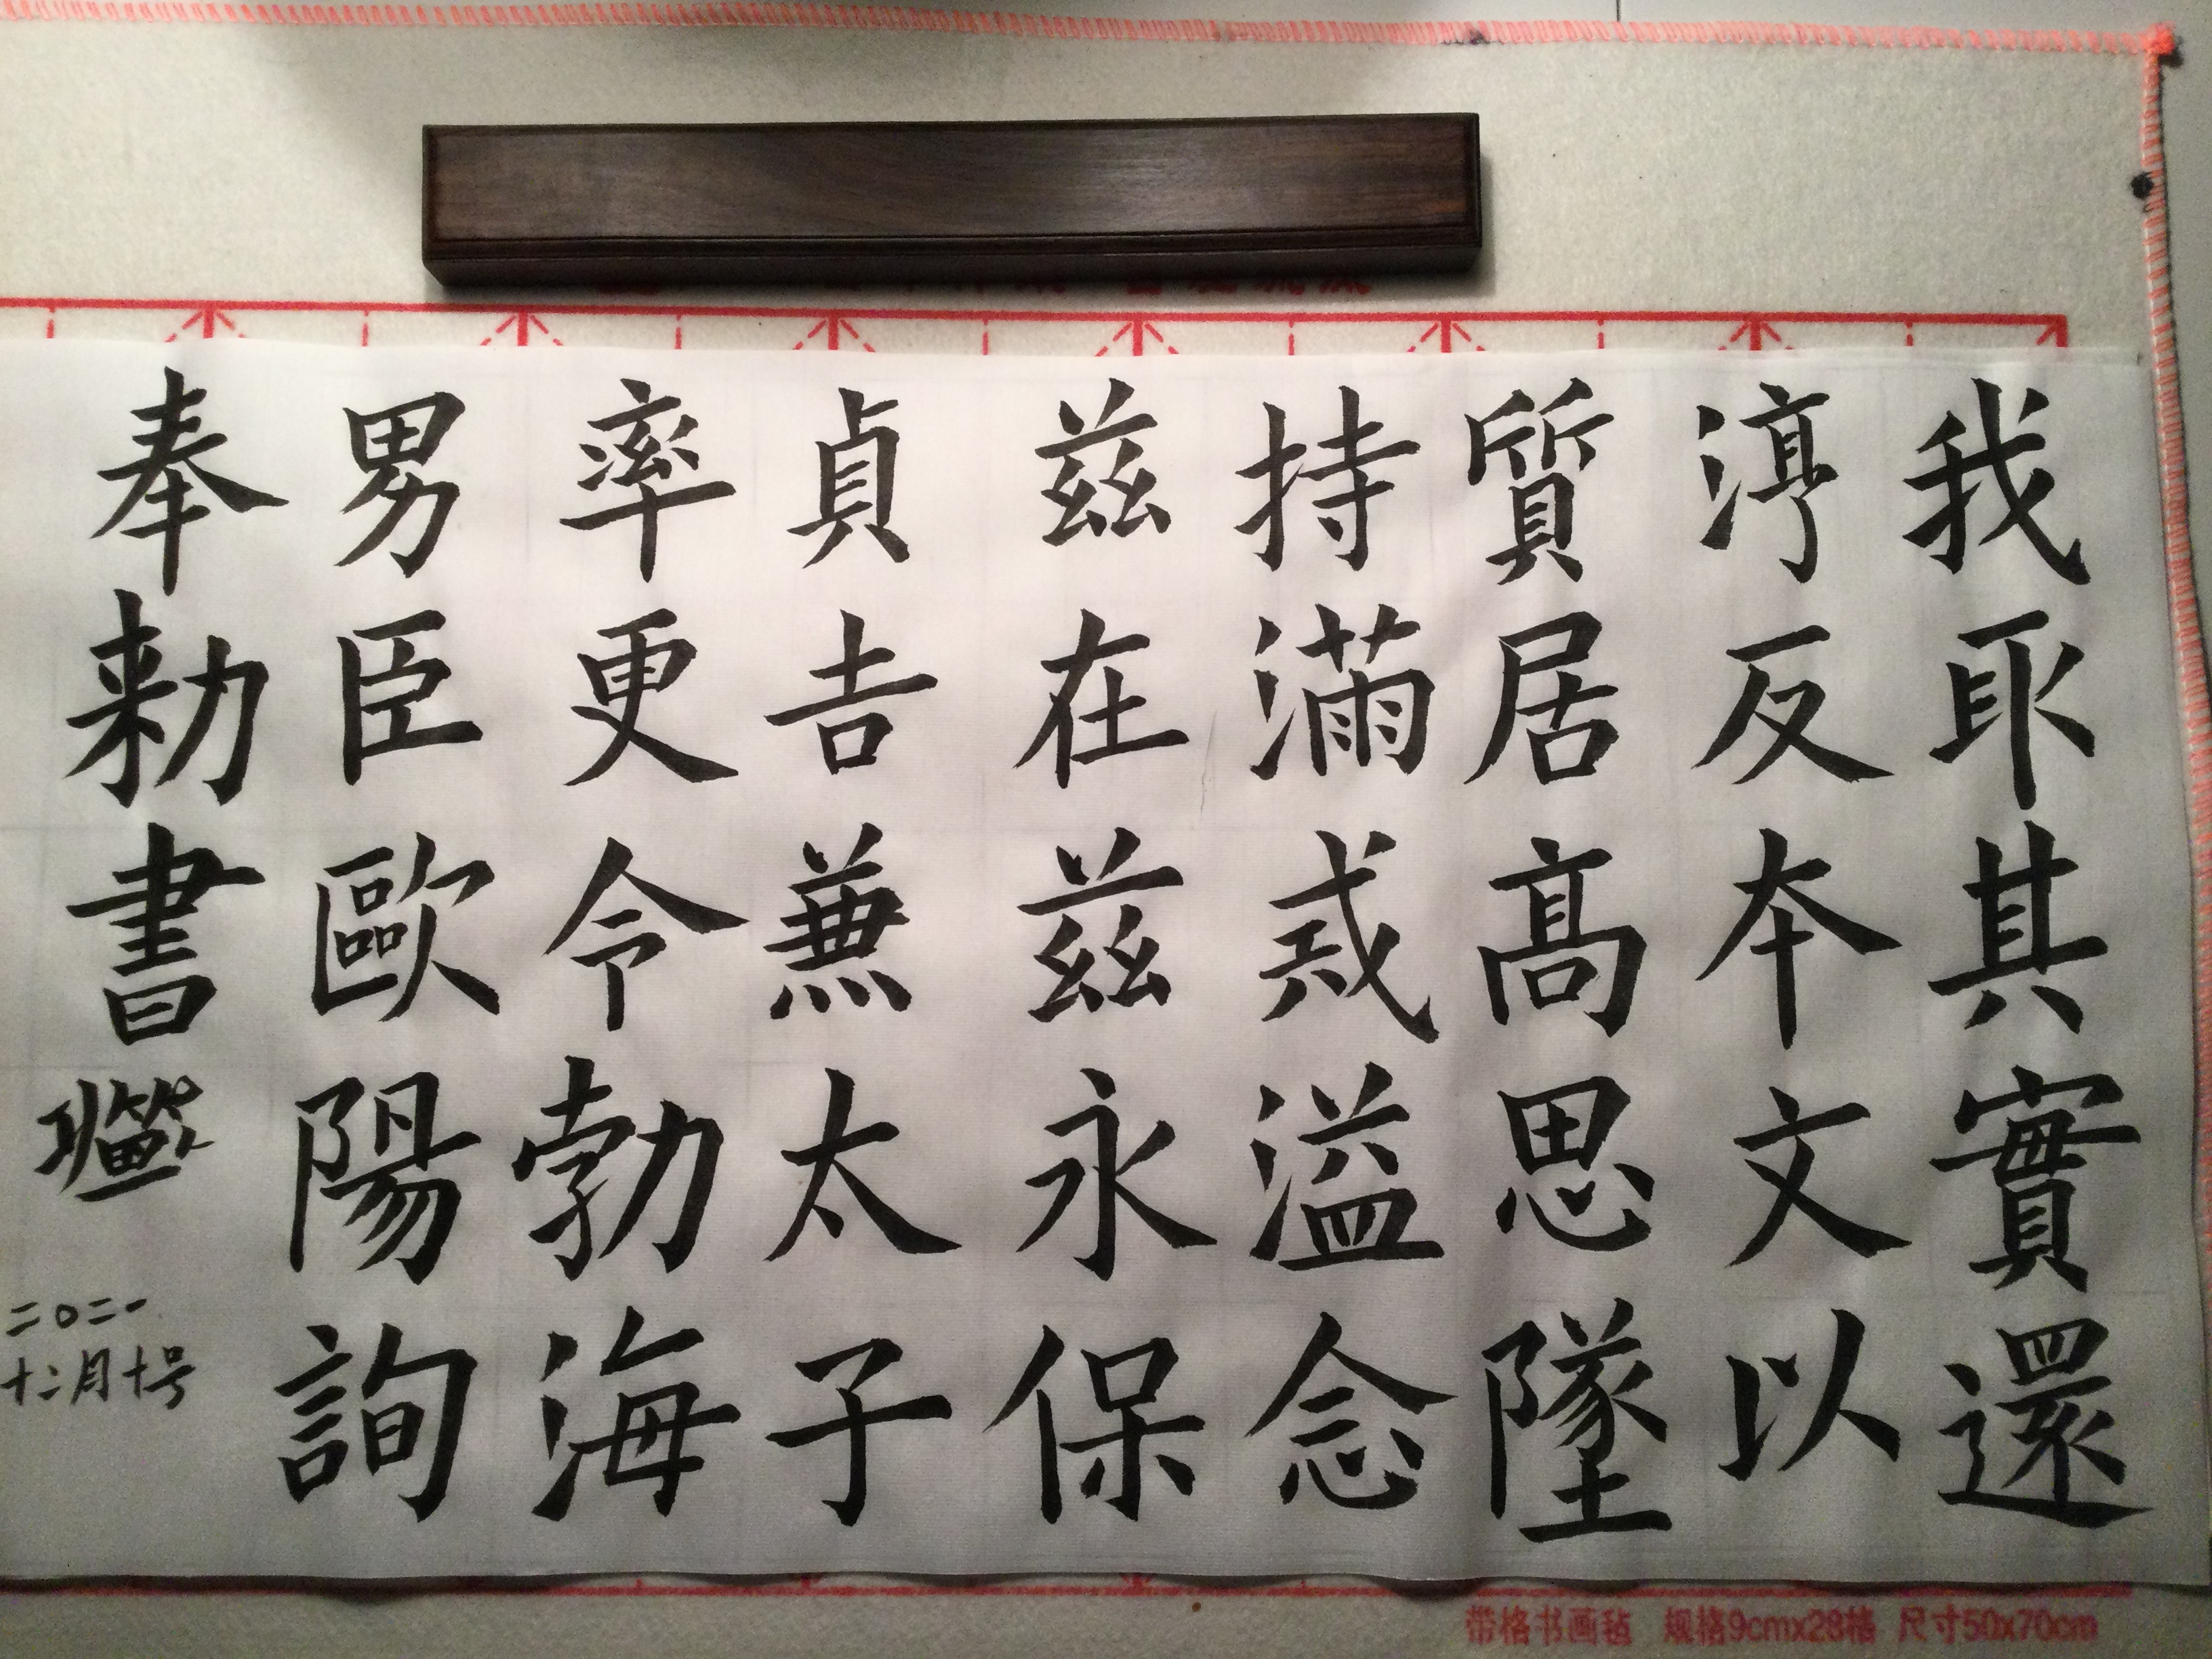 我取其實還
淳反本文以
質居高思墜
持滿戒溢念
茲在茲永保
貞吉兼太子
率更令勃海
男臣歐陽詢
奉勅書
二〇二一
十二月十号
带格书画毡 规格9cmx28格 尺寸50x70cm